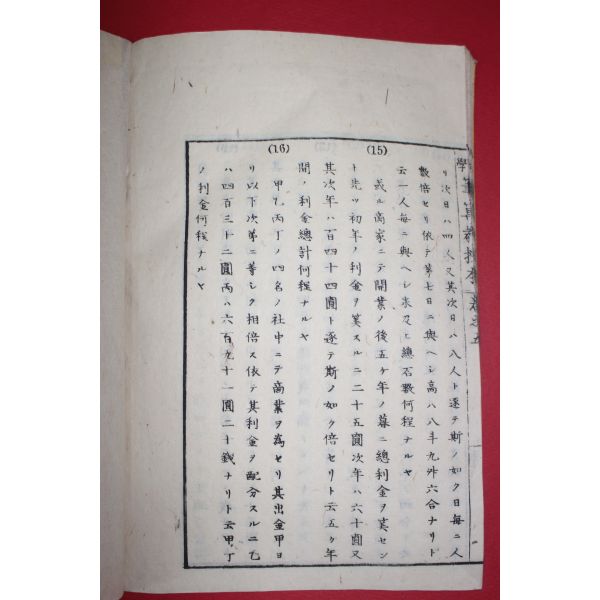 リ次日ハ四人又其次日ハ八人ト逐テ斯ノ如ク日每ニ人
數倍セリ依テ第七日ニ與ヘシ高ハ八斗九升六合ナリト
云一人每ニ與ヘシ米及ヒ總石數何程ナルヤ
(15)
或ル商家ニテ開業ノ後五ケ年ノ暮ニ總利金ヲ算セン
ト先ツ初年ノ利金ヲ算スルニ二十五圓次年ハ六十圓又
其次年ハ百四十四圓ト逐テ斯ノ如ク倍セリト云五ケ年
間ノ利金總計何程ナルヤ
(16)
甲乙丙丁ノ四名ノ社中ニテ商業ヲ爲セリ其出金甲ヨ
リ以下次第ニ等シク相倍ス依テ其利金ヲ配分スルニ乙
ハ四百三十二圓丙ハ六百九十一圓二十錢ナリト云甲丁
ノ利金何程ナルヤ